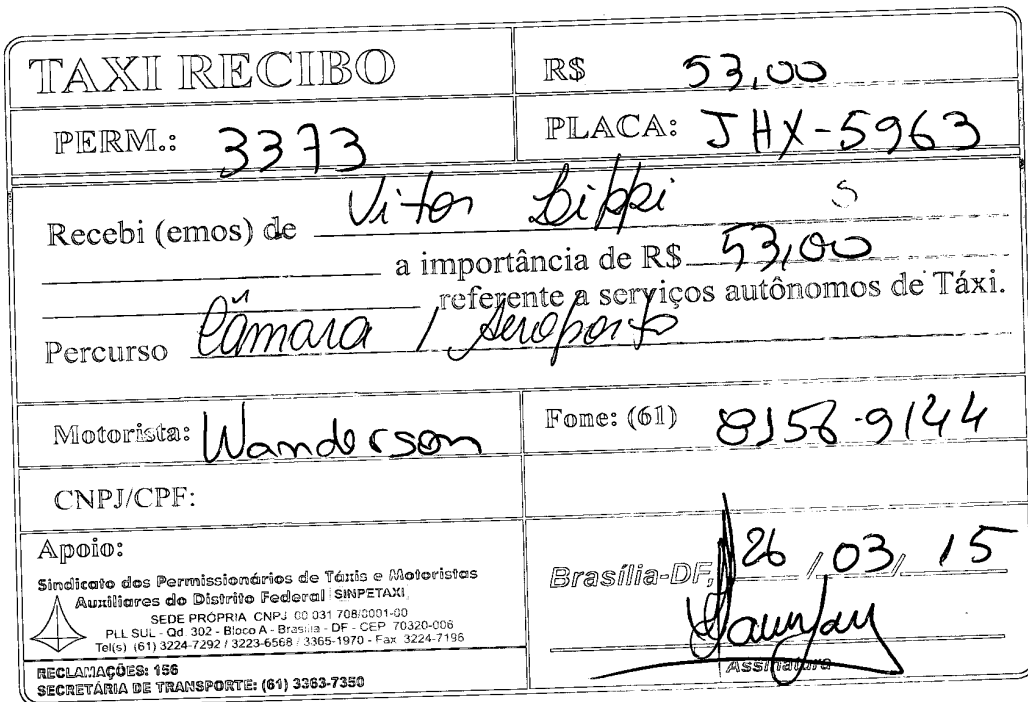 TAXI RECIBO
R$ 53,00
PERM.: 3373
PLACA: JHX-5963
Recebi (emos) de Vitor Lippi
a importância de R$ 53,00
referente a serviços autônomos de Táxi.
Percurso Câmara / Aeroporto
Motorista: Wanderson
Fone: (61) 8156-9144
CNPJ/CPF:
Apoio:
Sindicato dos Permissionários de Táxis e Motoristas
Auxiliares do Distrito Federal SINPETAXI
SEDE PRÓPRIA CNPJ 00 031 708/0001-00
PLL SUL - Qd. 302 - Bloco A - Brasília - DF - CEP 70320-006
Tel(s) (61) 3224-7292 / 3223-6568 / 3365-1970 - Fax 3224-7196
RECLAMAÇÕES: 156
SECRETÁRIA DE TRANSPORTE: (61) 3363-7350
Brasília-DF, 26 / 03 / 15
Assinatura